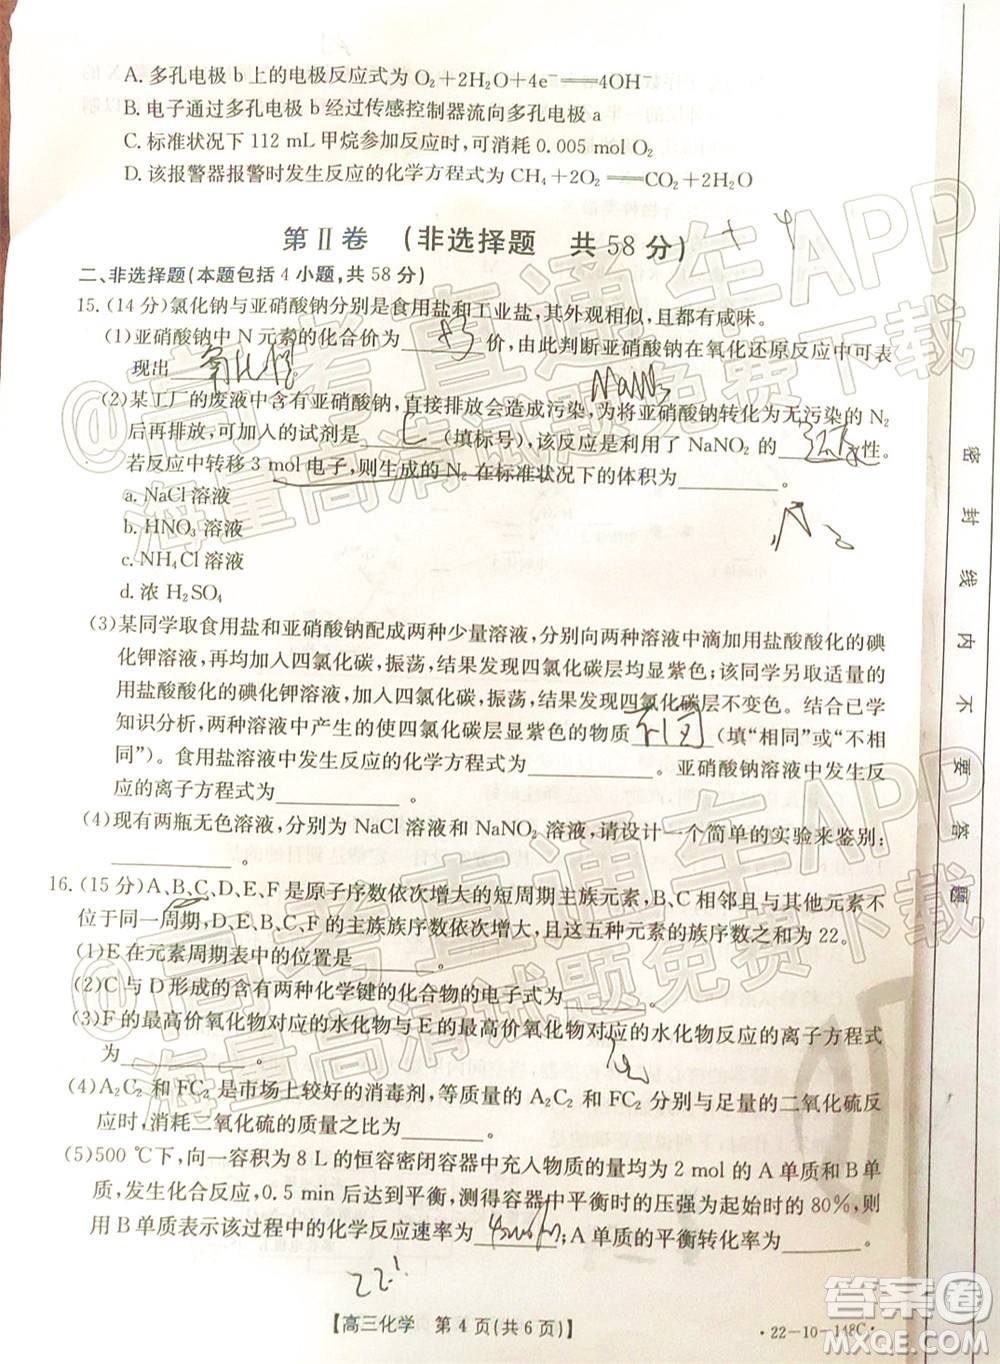 A. 多孔电极 b 上的电极反应式为 O₂+2H₂O+4e⁻══4OH⁻
B. 电子通过多孔电极 b 经过传感控制器流向多孔电极 a
C. 标准状况下 112 mL 甲烷参加反应时,可消耗 0.005 mol O₂
D. 该报警器报警时发生反应的化学方程式为 CH₄+2O₂══CO₂+2H₂O
第Ⅱ卷 (非选择题 共 58 分)
二、非选择题(本题包括 4 小题,共 58 分)
15. (14 分)氯化钠与亚硝酸钠分别是食用盐和工业盐,其外观相似,且都有咸味。
(1)亚硝酸钠中 N 元素的化合价为 +3 价,由此判断亚硝酸钠在氧化还原反应中可表
现出 氧化性
NaNO₂
(2)某工厂的废液中含有亚硝酸钠,直接排放会造成污染,为将亚硝酸钠转化为无污染的 N₂
后再排放,可加入的试剂是 C (填标号),该反应是利用了 NaNO₂ 的 还原 性。
若反应中转移 3 mol 电子,则生成的 N₂ 在标准状况下的体积为________。
a. NaCl 溶液
b. HNO₃ 溶液
c. NH₄Cl 溶液
d. 浓 H₂SO₄
N₂
(3)某同学取食用盐和亚硝酸钠配成两种少量溶液,分别向两种溶液中滴加用盐酸酸化的碘
化钾溶液,再均加入四氯化碳,振荡,结果发现四氯化碳层均显紫色;该同学另取适量的
用盐酸酸化的碘化钾溶液,加入四氯化碳,振荡,结果发现四氯化碳层不变色。结合已学
知识分析,两种溶液中产生的使四氯化碳层显紫色的物质 不同 (填“相同”或“不相
同”)。食用盐溶液中发生反应的化学方程式为________。亚硝酸钠溶液中发生反
应的离子方程式为________。
(4)现有两瓶无色溶液,分别为 NaCl 溶液和 NaNO₂ 溶液,请设计一个简单的实验来鉴别:
________。
16. (15 分)A、B、C、D、E、F 是原子序数依次增大的短周期主族元素,B、C 相邻且与其他元素不
位于同一周期,D、E、F 的主族族序数依次增大,且这五种元素的族序数之和为 22。
(1)E 在元素周期表中的位置是________。
(2)C 与 D 形成的含有两种化学键的化合物的电子式为________。
(3)F 的最高价氧化物对应的水化物与 E 的最高价氧化物对应的水化物反应的离子方程式
为________。
(4)A₂C₂ 和 FC₂ 是市场上较好的消毒剂,等质量的 A₂C₂ 和 FC₂ 分别与足量的二氧化硫反
应时,消耗二氧化硫的质量之比为________。
(5)500 ℃下,向一容积为 8 L 的恒容密闭容器中充入物质的量均为 2 mol 的 A 单质和 B 单
质,发生化合反应,0.5 min 后达到平衡,测得容器中平衡时的压强为起始时的 80%,则
用 B 单质表示该过程中的化学反应速率为________;A 单质的平衡转化率为________。
【高三化学 第 4 页(共 6 页)】
·22-10-148C·
密封线内不要答题
@高考直通车APP
海量高清试题免费下载
@高考直通车APP
海量高清试题免费下载
答案圈
MXQE.COM